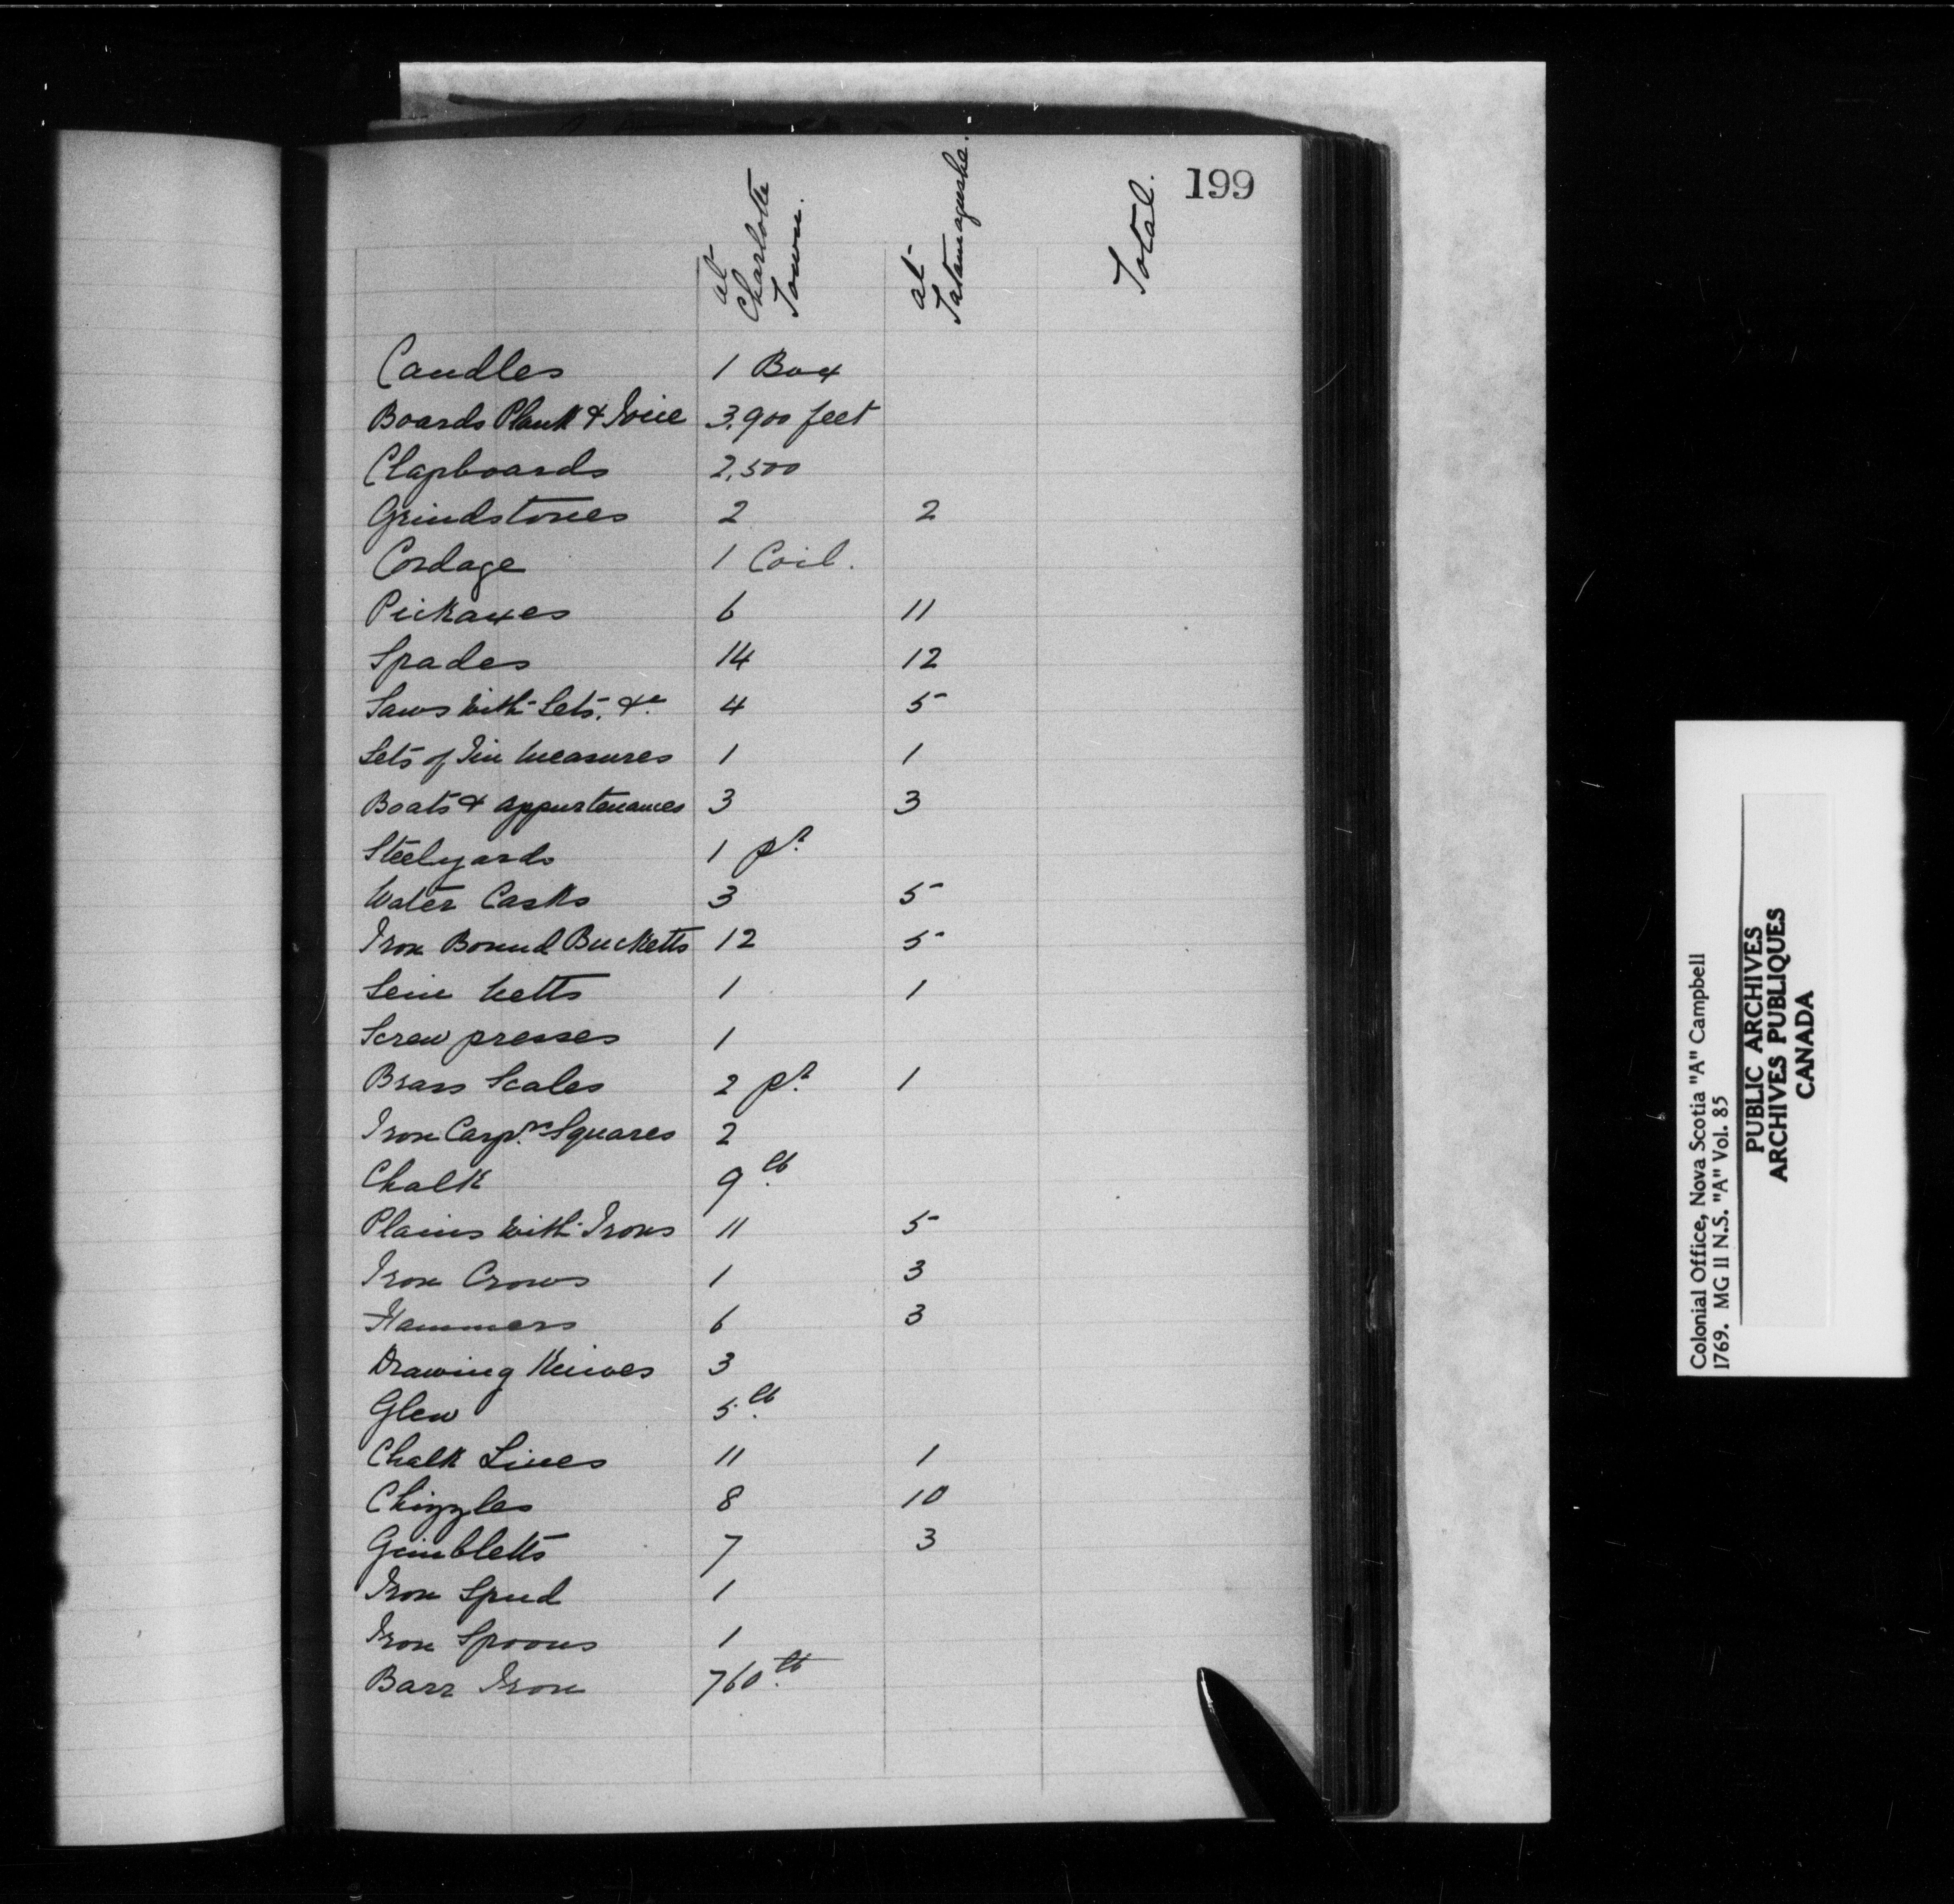 199
at Charlotte Town.
at Tatamagusha.
Total.
Candles 1 Box
Boards Plank & Joice 3,900 feet
Clapboards 2,500
Grindstones 2 2
Cordage 1 Coil.
Pickaxes 6 11
Spades 14 12
Saws with Sets, &c. 4 5
Sets of Tin measures 1 1
Boats & appurtenances 3 3
Steelyards 1 pr.
Water Casks 3 5
Iron Bound Bucketts 12 5
Sein Netts 1 1
Screw presses 1
Brass Scales 2 pr. 1
Iron Carprs. Squares 2
Chalk 9 lb.
Plains with Irons 11 5
Iron Crows 1 3
Hammers 6 3
Drawing Knives 3
Glew 5 lb.
Chalk Lines 11 1
Chizzles 8 10
Gimbletts 7 3
Iron Spud 1
Iron Spoons 1
Barr Iron 760 lb.
Colonial Office, Nova Scotia "A" Campbell
1769. MG 11 N.S. "A" Vol. 85
PUBLIC ARCHIVES
ARCHIVES PUBLIQUES
CANADA